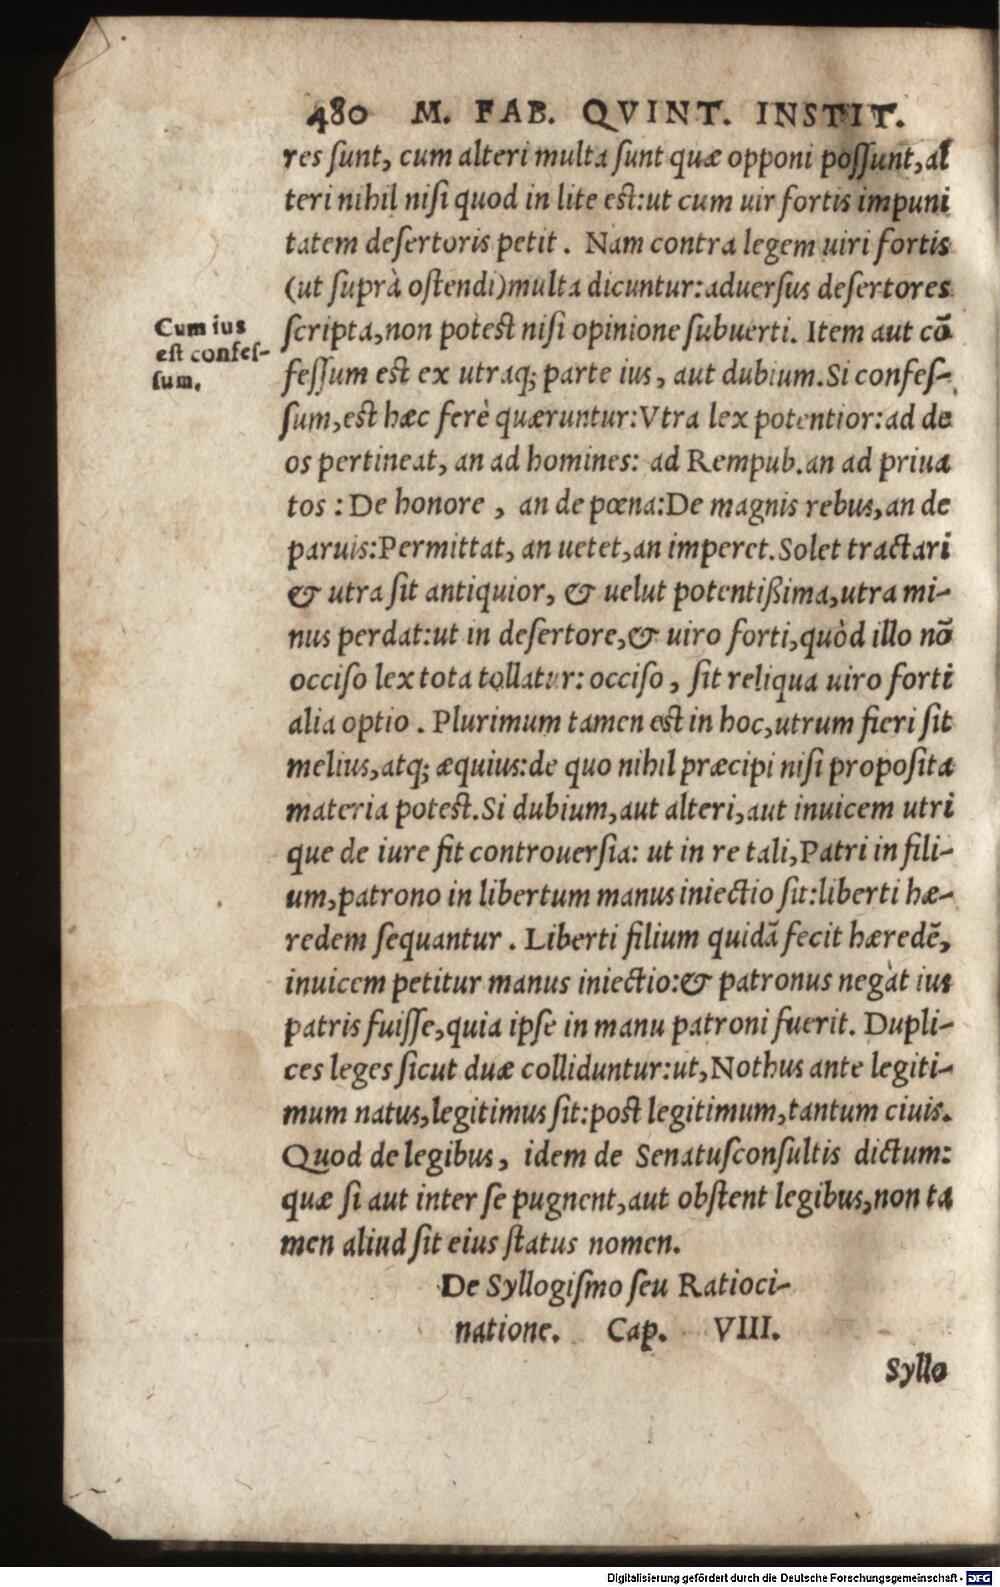 480 M. FAB. QVINT. INSTIT.
res ſunt, cum alteri multa ſunt quæ opponi poſſunt, al
teri nihil niſi quod in lite eſt: ut cum uir fortis impuni
tatem deſertoris petit. Nam contra legem uiri fortis
(ut ſuprà oſtendi) multa dicuntur: aduerſus deſertores
Cum ius
eſt confeſ-
ſum.
ſcripta, non poteſt niſi opinione ſubuerti. Item aut cō
feſſum eſt ex utraq; parte ius, aut dubium. Si confeſ-
ſum, eſt hæc ferè quæruntur: Vtra lex potentior: ad de
os pertineat, an ad homines: ad Rempub. an ad priua
tos: De honore, an de pœna: De magnis rebus, an de
paruis: Permittat, an uetet, an imperet. Solet tractari
& utra ſit antiquior, & uelut potentißima, utra mi-
nus perdat: ut in deſertore, & uiro forti, quòd illo nō
occiſo lex tota tollatur: occiſo, ſit reliqua uiro forti
alia optio. Plurimum tamen eſt in hoc, utrum fieri ſit
melius, atq; æquius: de quo nihil præcipi niſi propoſita
materia poteſt. Si dubium, aut alteri, aut inuicem utri
que de iure fit controuerſia: ut in re tali, Patri in fili-
um, patrono in libertum manus iniectio ſit: liberti hæ-
redem ſequantur. Liberti filium quidā fecit hæredē,
inuicem petitur manus iniectio: & patronus negàt ius
patris fuiſſe, quia ipſe in manu patroni fuerit. Dupli-
ces leges ſicut duæ colliduntur: ut, Nothus ante legiti-
mum natus, legitimus ſit: poſt legitimum, tantum ciuis.
Quod de legibus, idem de Senatuſconſultis dictum:
quæ ſi aut inter ſe pugnent, aut obſtent legibus, non ta
men aliud ſit eius ſtatus nomen.
De Syllogiſmo ſeu Ratioci-
natione. Cap. VIII.
Syllo
Digitalisierung gefördert durch die Deutsche Forschungsgemeinschaft - DFG